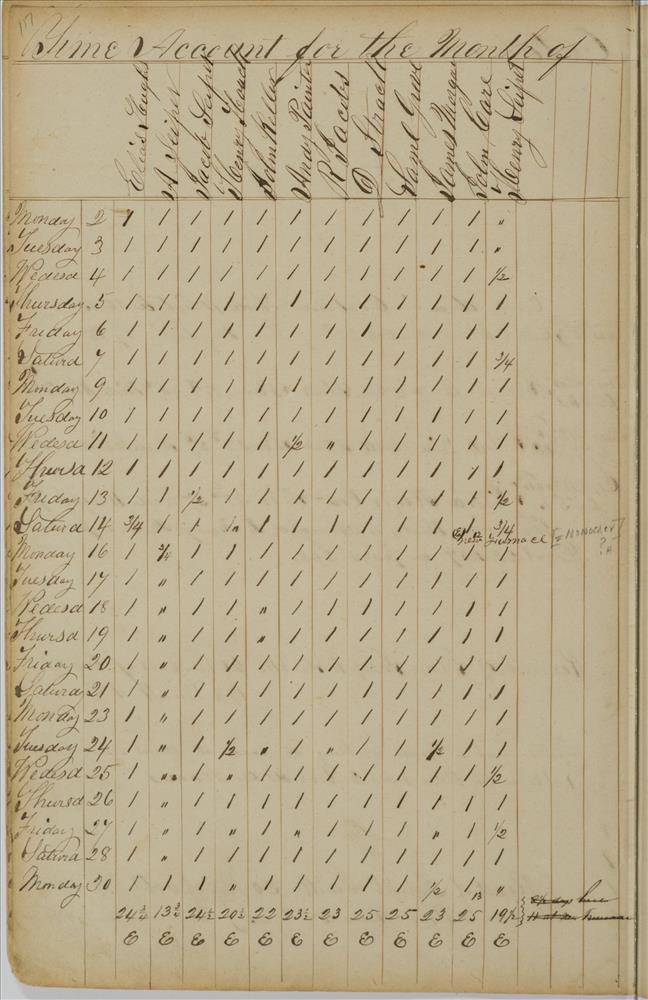 117
Time Account for the Month of
Elias
A Leiper
Jacob
Henry
John Keller
R Jacobs
D
Saml
James Morgan
John Care
Henry
Monday 2 1 1 1 1 1 1 1 1 1 1 1 "
Tuesday 3 1 1 1 1 1 1 1 1 1 1 1 "
Wedesd 4 1 1 1 1 1 1 1 1 1 1 1 1/2
Thursday 5 1 1 1 1 1 1 1 1 1 1 1 1
Friday 6 1 1 1 1 1 1 1 1 1 1 1 1
Saturd 7 1 1 1 1 1 1 1 1 1 1 1 3/4
Monday 9 1 1 1 1 1 1 1 1 1 1 1 1
Tuesday 10 1 1 1 1 1 1 1 1 1 1 1 1
Wedesd 11 1 1 1 1 1 1/2 " 1 1 1 1 1
Thursd 12 1 1 1 1 1 1 1 1 1 1 1 1
Friday 13 1 1 1/2 1 1 1 1 1 1 1 1 1/2
Saturd 14 3/4 1 1 1 1 1 1 1 1 1 1 3/4
Furnace
Monday 16 1 3/4 1 1 1 1 1 1 1 1 1 1
Tuesday 17 1 " 1 1 1 1 1 1 1 1 1 1
Wedesd 18 1 " 1 1 " 1 1 1 1 1 1 1
Thursd 19 1 " 1 1 " 1 1 1 1 1 1 1
Friday 20 1 " 1 1 1 1 1 1 1 1 1 1
Saturd 21 1 " 1 1 1 1 1 1 1 1 1 1
Monday 23 1 " 1 1 1 1 1 1 1 1 1 1
Tuesday 24 1 " 1 1/2 " 1 " 1 1 1/2 1 1
Wedesd 25 1 " 1 " 1 1 1 1 1 1 1 1/2
Thursd 26 1 " 1 1 1 1 1 1 1 1 1 1
Friday 27 1 " 1 " 1 " 1 1 1 " 1 1/2
Saturd 28 1 " 1 1 1 1 1 1 1 1 1 1
Monday 30 1 1 1 " 1 1 1 1 1 1/2 1 "
13
24 3/4 13 3/4 24 1/2 20 1/2 22 23 1/2 23 25 25 23 25 19 1/2
days here
E E E E E E E E E E E E